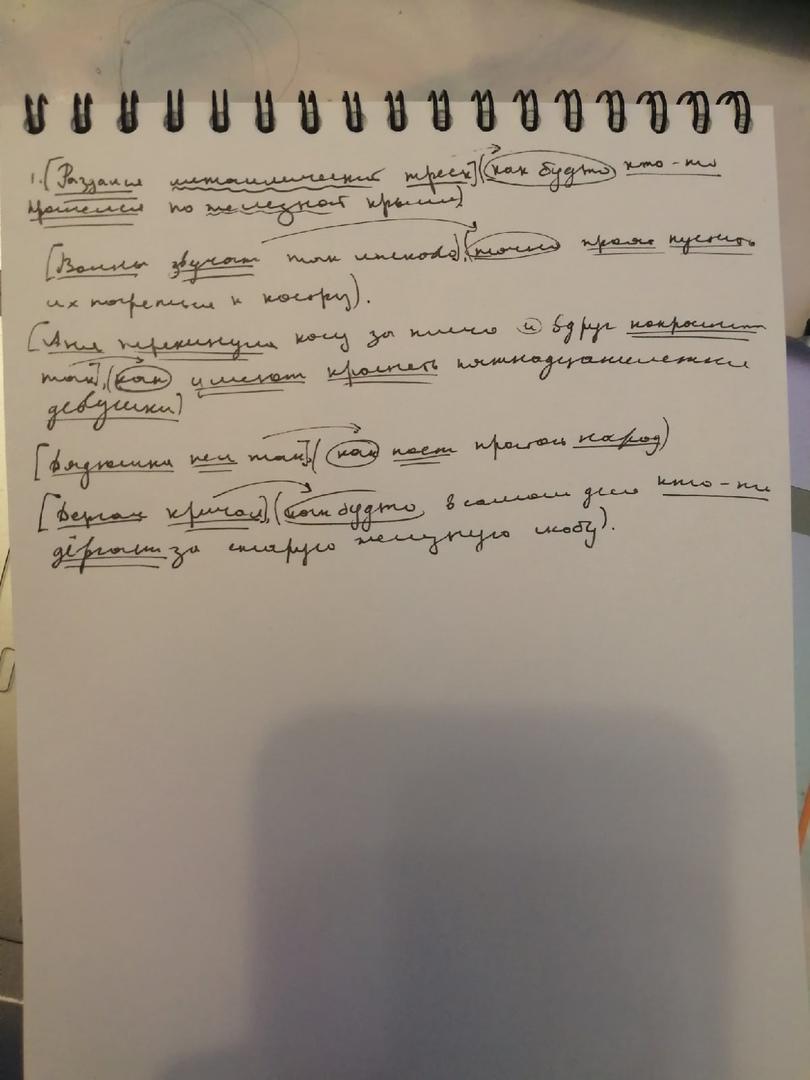 1. [Раздался металлический треск] (как будто кто-то
прошелся по железной крыше)
[Волны звучат так ласково], (точно просят пустить
их погреться к костру).
[Аня перекинула косу за плечо и вдруг покраснела
так], (как умеют краснеть пятнадцатилетние
девушки)
[Дядюшка пел так], (как поет простой народ)
[Дергач кричал], (как будто в самом деле кто-то
дёргает за старую железную скобу).